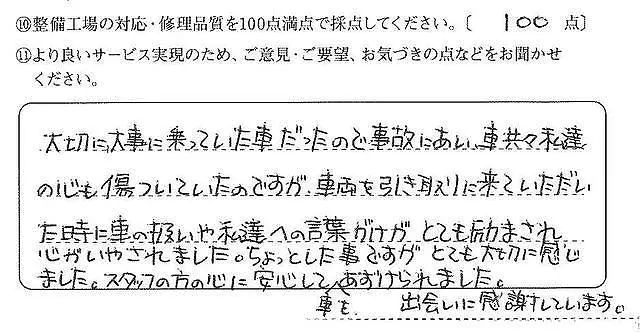 ⑩整備工場の対応・修理品質を100点満点で採点してください。〔 100 点〕
⑪より良いサービス実現のため、ご意見・ご要望、お気づきの点などをお聞かせ
ください。
大切に大事に乗っていた車だったので事故にあい、車共々私達
の心も傷ついていたのですが、車両を引き取りに来ていただい
た時に車の扱いや私達への言葉がけがとても励まされ
心がいやされました。ちょっとした事ですがとても大切に感じ
ました。スタッフの方の心に安心してあずけられました。
車を 出会いに感謝しています。